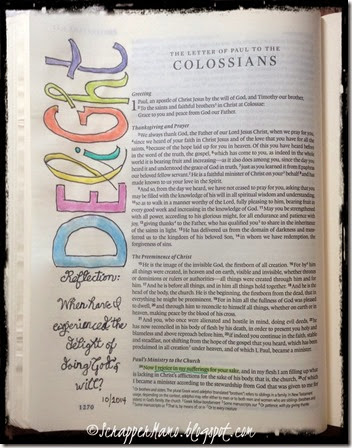 DELiGht
Reflection:
When have I
experienced the
delight of
doing God's
will?
10/2014
1270
THE LETTER OF PAUL TO THE
COLOSSIANS
Greeting
1 Paul, an apostle of Christ Jesus by the will of God, and Timothy our brother,
2 To the saints and faithful brothers in Christ at Colossae:
Grace to you and peace from God our Father.
Thanksgiving and Prayer
3 We always thank God, the Father of our Lord Jesus Christ, when we pray for you,
4 since we heard of your faith in Christ Jesus and of the love that you have for all the
saints, 5 because of the hope laid up for you in heaven. Of this you have heard before
in the word of the truth, the gospel, 6 which has come to you, as indeed in the whole
world it is bearing fruit and increasing—as it also does among you, since the day you
heard it and understood the grace of God in truth, 7 just as you learned it from Epaphras
our beloved fellow servant. He is a faithful minister of Christ on your behalf 8 and has
made known to us your love in the Spirit.
9 And so, from the day we heard, we have not ceased to pray for you, asking that you
may be filled with the knowledge of his will in all spiritual wisdom and understanding,
10 so as to walk in a manner worthy of the Lord, fully pleasing to him, bearing fruit in
every good work and increasing in the knowledge of God. 11 May you be strengthened
with all power, according to his glorious might, for all endurance and patience with
joy, 12 giving thanks to the Father, who has qualified you to share in the inheritance
of the saints in light. 13 He has delivered us from the domain of darkness and trans-
ferred us to the kingdom of his beloved Son, 14 in whom we have redemption, the
forgiveness of sins.
The Preeminence of Christ
15 He is the image of the invisible God, the firstborn of all creation. 16 For by him
all things were created, in heaven and on earth, visible and invisible, whether thrones
or dominions or rulers or authorities—all things were created through him and for
him. 17 And he is before all things, and in him all things hold together. 18 And he is the
head of the body, the church. He is the beginning, the firstborn from the dead, that in
everything he might be preeminent. 19 For in him all the fullness of God was pleased
to dwell, 20 and through him to reconcile to himself all things, whether on earth or in
heaven, making peace by the blood of his cross.
21 And you, who once were alienated and hostile in mind, doing evil deeds, 22 he
has now reconciled in his body of flesh by his death, in order to present you holy and
blameless and above reproach before him, 23 if indeed you continue in the faith, stable
and steadfast, not shifting from the hope of the gospel that you heard, which has been
proclaimed in all creation under heaven, and of which I, Paul, became a minister.
Paul's Ministry to the Church
24 Now I rejoice in my sufferings for your sake, and in my flesh I am filling up what
is lacking in Christ's afflictions for the sake of his body, that is, the church, 25 of which
I became a minister according to the stewardship from God that was given to me for
ScrapperMama.blogspot.com